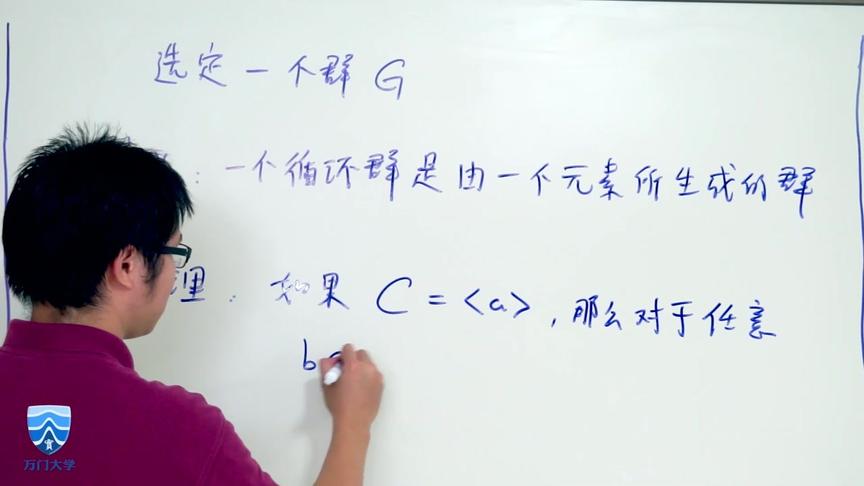 选定一个群 G
：一个循环群是由一个元素所生成的群
理：如果 C = <a>，那么对于任意
b
万门大学